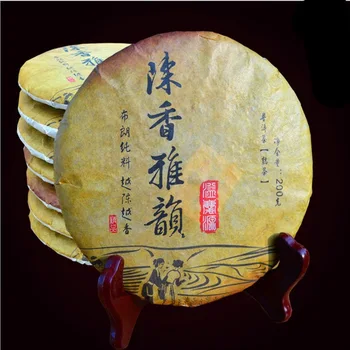 陳香雅韻
布朗純料 越陈越香
普洱茶【熟茶】
净含量:200克